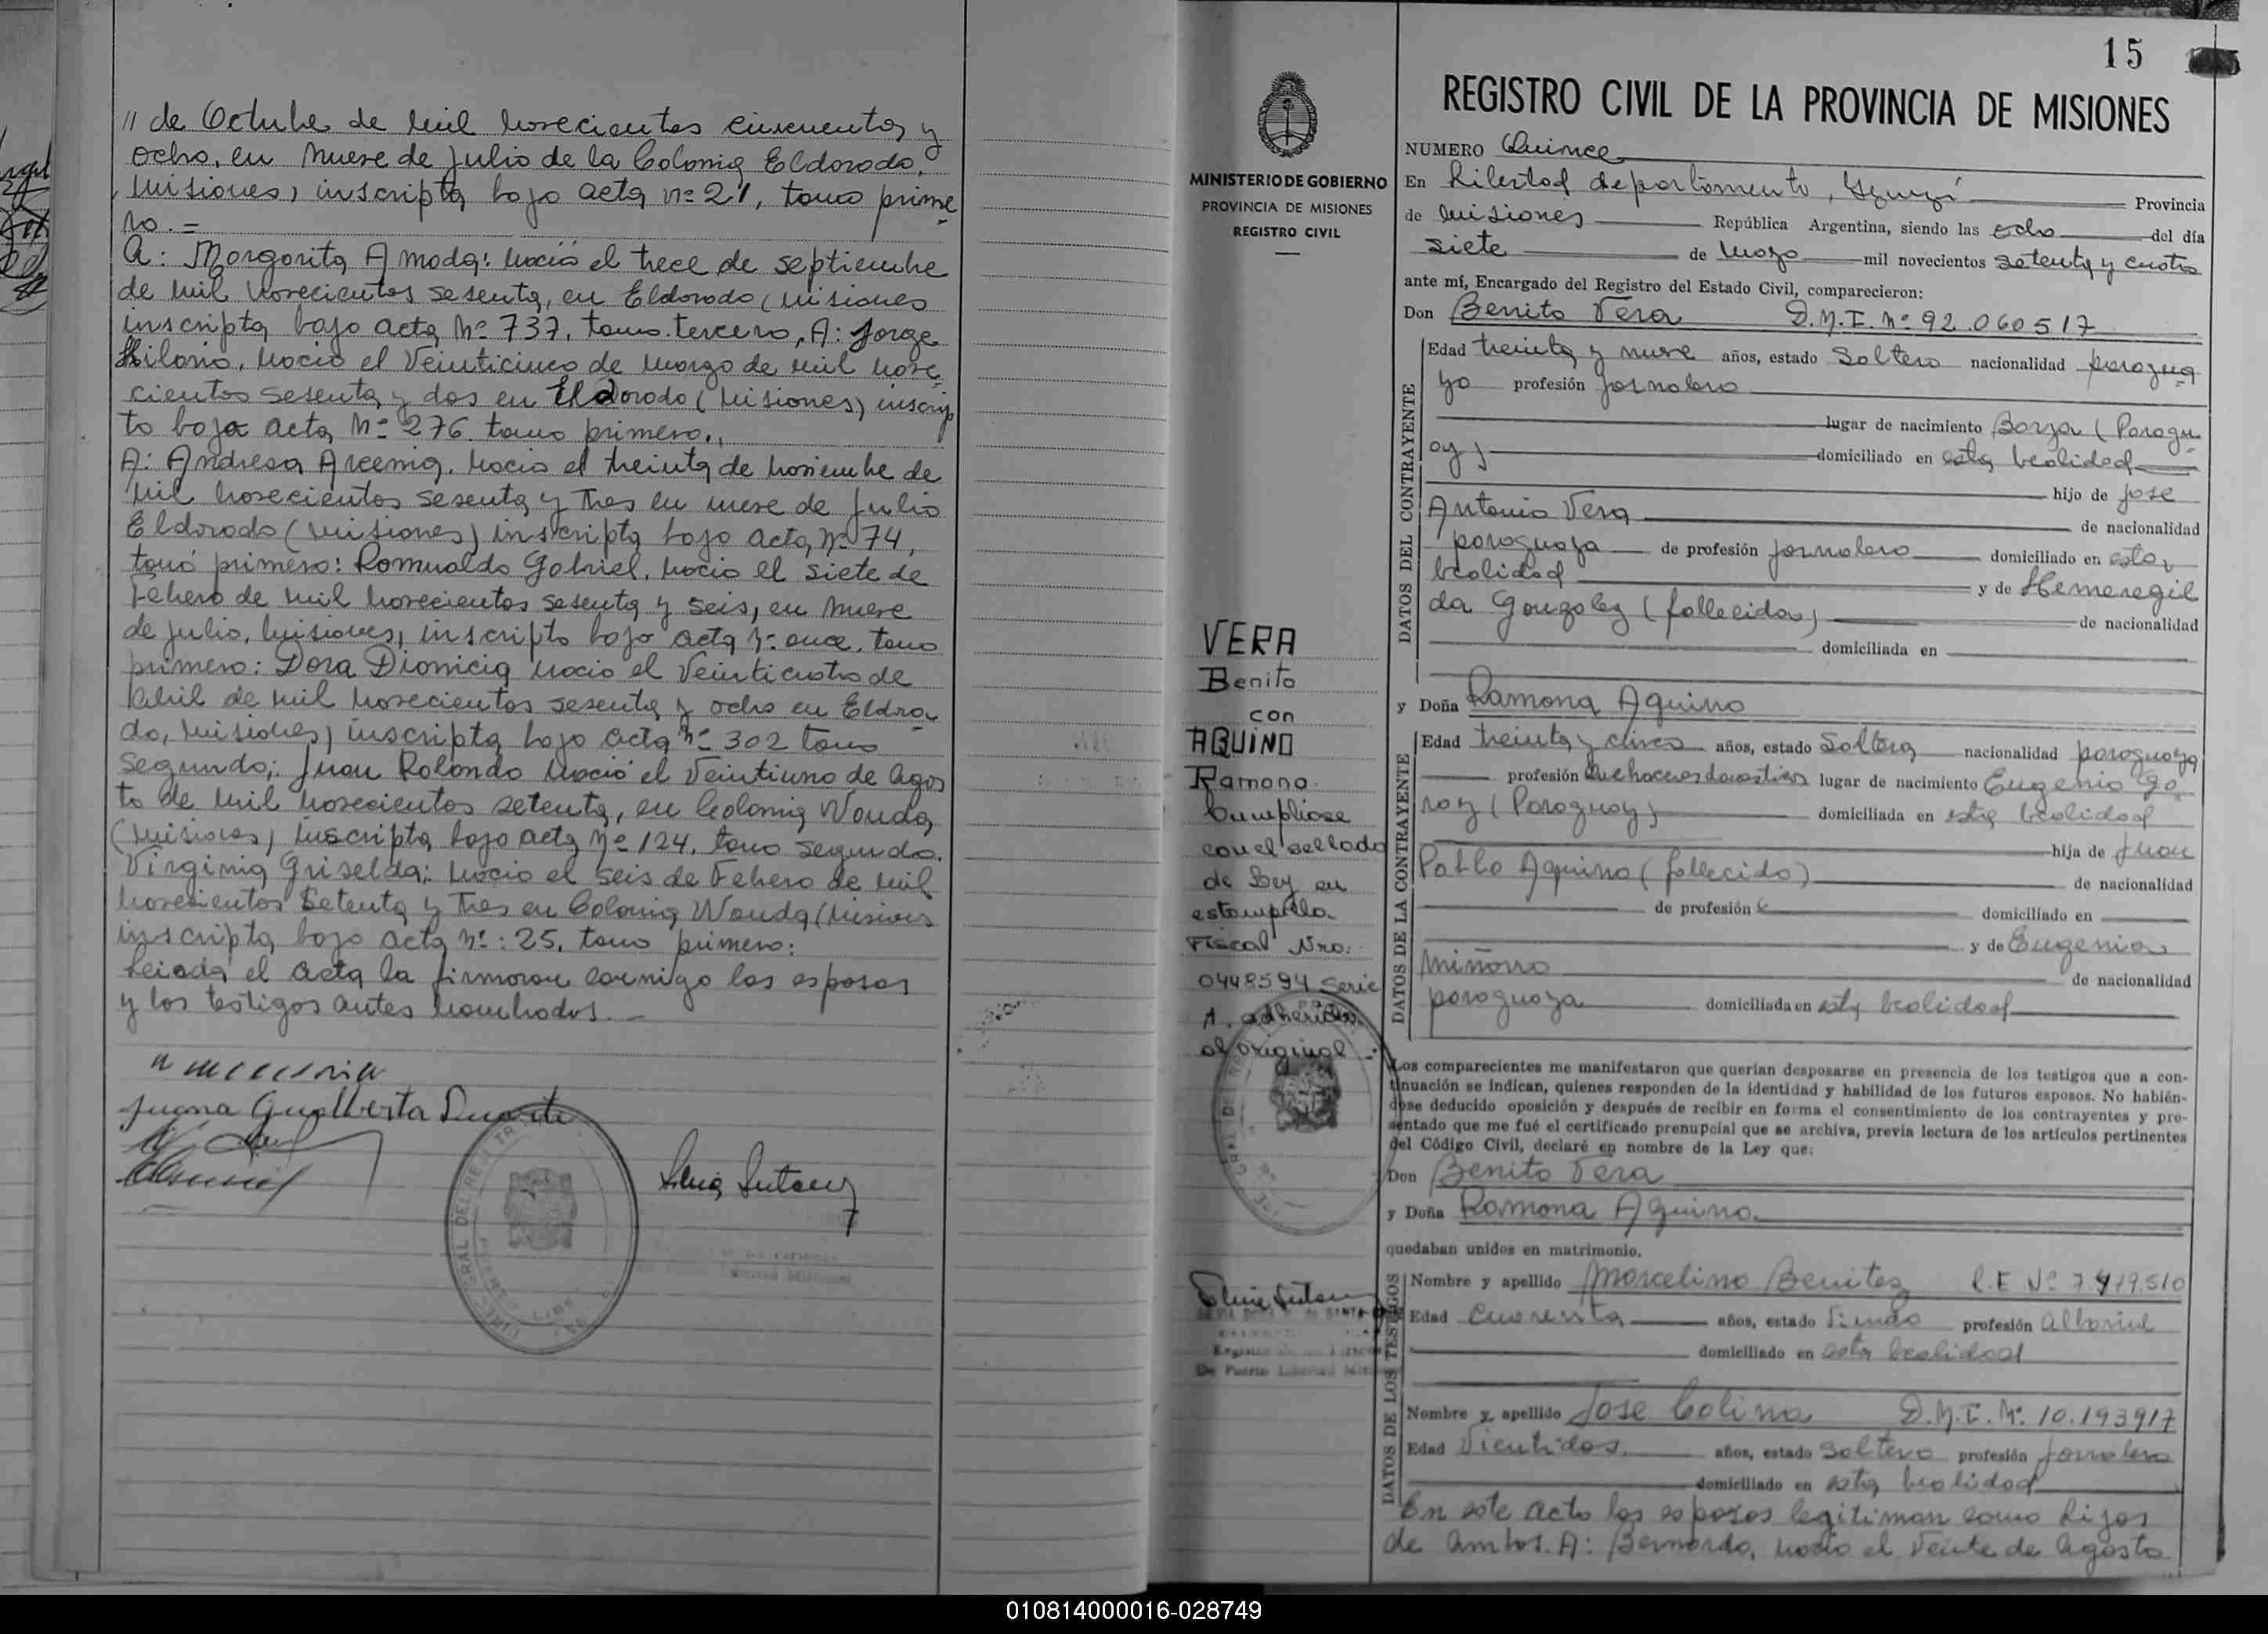 // de Octubre de mil novecientos cincuenta y
ocho, en Nueve de Julio de la Colonia Eldorado,
Misiones, inscripta bajo acta nº 21, tomo prime
ro. =
A: Margarita Amada: nació el trece de septiembre
de mil novecientos sesenta, en Eldorado (Misiones
inscripta bajo acta Nº 737, tomo tercero, A: Jorge
Hilario, nacio el Veinticinco de marzo de mil nove
cientos sesenta y dos en Eldorado (Misiones) inscrip
to bajo acta Nº 276 tomo primero.,
A: Andresa Arcenia. nacio el treinta de noviembre de
mil novecientos sesenta y tres en nueve de Julio
Eldorado (Misiones) inscripta bajo acta, nº 74,
tomo primero: Romualdo Gabriel, nacio el siete de
Febrero de mil novecientos sesenta y seis, en nueve
de julio, Misiones, inscripto bajo acta nº once, tomo
primero: Dora Dionicia nacio el Veinticuatro de
Abril de mil novecientos sesenta y ocho en Eldra
do, Misiones) inscripta bajo acta nº 302 tomo
segundo; Juan Rolando nació el Veintiuno de Agos
to de mil novecientos setenta, en Colonia Wanda
(Misiones) inscripta bajo acta nº 124, tomo segundo.
Virginia Griselda: nacio el seis de Febrero de mil
novecientos setenta y tres en Colonia Wanda (Misiones
inscripta bajo acta nº: 25, tomo primero:
Leiada el acta la firmaron conmigo los esposos
y los testigos antes nombrados. -
Juana Gualberta Duarte
15
REGISTRO CIVIL DE LA PROVINCIA DE MISIONES
MINISTERIO DE GOBIERNO
PROVINCIA DE MISIONES
REGISTRO CIVIL
NUMERO Quince
En Libertad departamento, Iguazú Provincia
de Misiones República Argentina, siendo las ocho del día
siete de Marzo mil novecientos setenta y cuatro
ante mí, Encargado del Registro del Estado Civil, comparecieron:
Don Benito Vera D.N.I. Nº 92.060517
DATOS DEL CONTRAYENTE
Edad treinta y nueve años, estado Soltero nacionalidad paragua
yo profesión jornalero
lugar de nacimiento Borja (Paragu
ay) domiciliado en esta localidad
hijo de Jose
Antonio Vera de nacionalidad
paraguaya de profesión jornalero domiciliado en esta
localidad y de Hemeregil
da Gonzalez (fallecida) de nacionalidad
domiciliada en
y Doña Ramona Aquino
DATOS DE LA CONTRAYENTE
Edad treinta y cinco años, estado Soltera nacionalidad paraguaya
profesión Quehaceres domesticos lugar de nacimiento Eugenio Ga
ray (Paraguay) domiciliada en esta localidad
hija de Juan
Pablo Aquino (fallecido) de nacionalidad
de profesión domiciliado en
y de Eugenia
Miñarro de nacionalidad
paraguaya domiciliada en esta localidad
VERA
Benito
con
AQUINO
Ramona.
Cumpliose
con el sellado
de Ley en
estampilla
Fiscal Nro:
0448594 Serie
A. adherida
al original -
Los comparecientes me manifestaron que querían desposarse en presencia de los testigos que a con-
tinuación se indican, quienes responden de la identidad y habilidad de los futuros esposos. No habién-
dose deducido oposición y después de recibir en forma el consentimiento de los contrayentes y pre-
sentado que me fué el certificado prenupcial que se archiva, previa lectura de los artículos pertinentes
del Código Civil, declaré en nombre de la Ley que:
Don Benito Vera
y Doña Ramona Aquino.
quedaban unidos en matrimonio.
DATOS DE LOS TESTIGOS
Nombre y apellido Marcelino Benitez L.E Nº 7.419.510
Edad Cuarenta años, estado Viudo profesión Albañil
domiciliado en esta localidad
Nombre y apellido Jose Colina D.N.I. Nº 10.193917
Edad Vientidos. años, estado Soltero profesión Jornalero
domiciliado en esta localidad
En este acto los esposos legitiman como hijos
de ambos. A: Bernardo, nacio el Veinte de Agosto
010814000016-028749